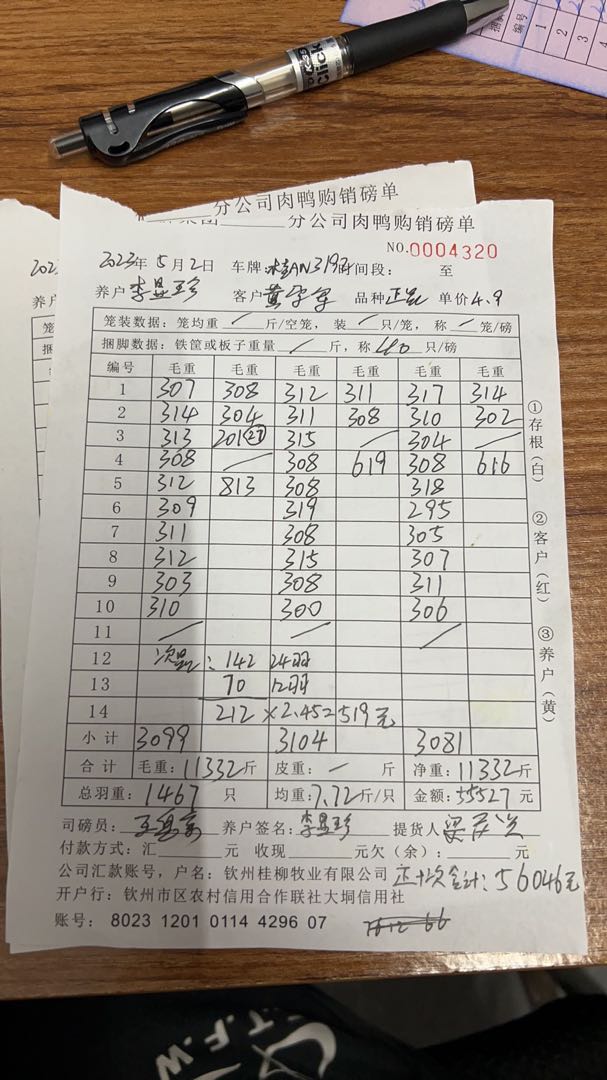 Click
编号
1
2
3
4
分公司肉鸭购销磅单
分公司肉鸭购销磅单
NO.0004320
2023年5月2日 车牌:桂AN319 时间段: 至
养户 李显珍 客户 黄 品种 正品 单价 4.9
笼装数据: 笼均重 / 斤/空笼, 装 / 只/笼, 称 / 笼/磅
捆脚数据: 铁筐或板子重量 / 斤, 称 40 只/磅
编号 毛重 毛重 毛重 毛重 毛重 毛重
1 307 308 312 311 317 314
2 314 304 311 308 310 302
3 313 201(27) 315 / 304 /
4 308 / 308 619 308 616
5 312 813 308 318
6 309 319 295
7 311 308 305
8 312 315 307
9 303 308 311
10 310 300 306
11 / / /
12 次品: 142 24羽
13 70 12羽
14 212×2.45=519元
小计 3099 3104 3081
合计 毛重: 11332斤 皮重: / 斤 净重: 11332斤
总羽重: 1467 只 均重: 7.72斤/只 金额: 55527元
司磅员: 养户签名: 李显珍 提货人
付款方式: 汇 元 收现 元欠(余): 元
公司汇款账号, 户名: 钦州桂柳牧业有限公司 正+次合计: 56046元
开户行: 钦州市区农村信用合作联社大垌信用社
账号: 8023 1201 0114 4296 07
①存根(白)
②客户(红)
③养户(黄)
202
养户
笼
捆
T.F.W